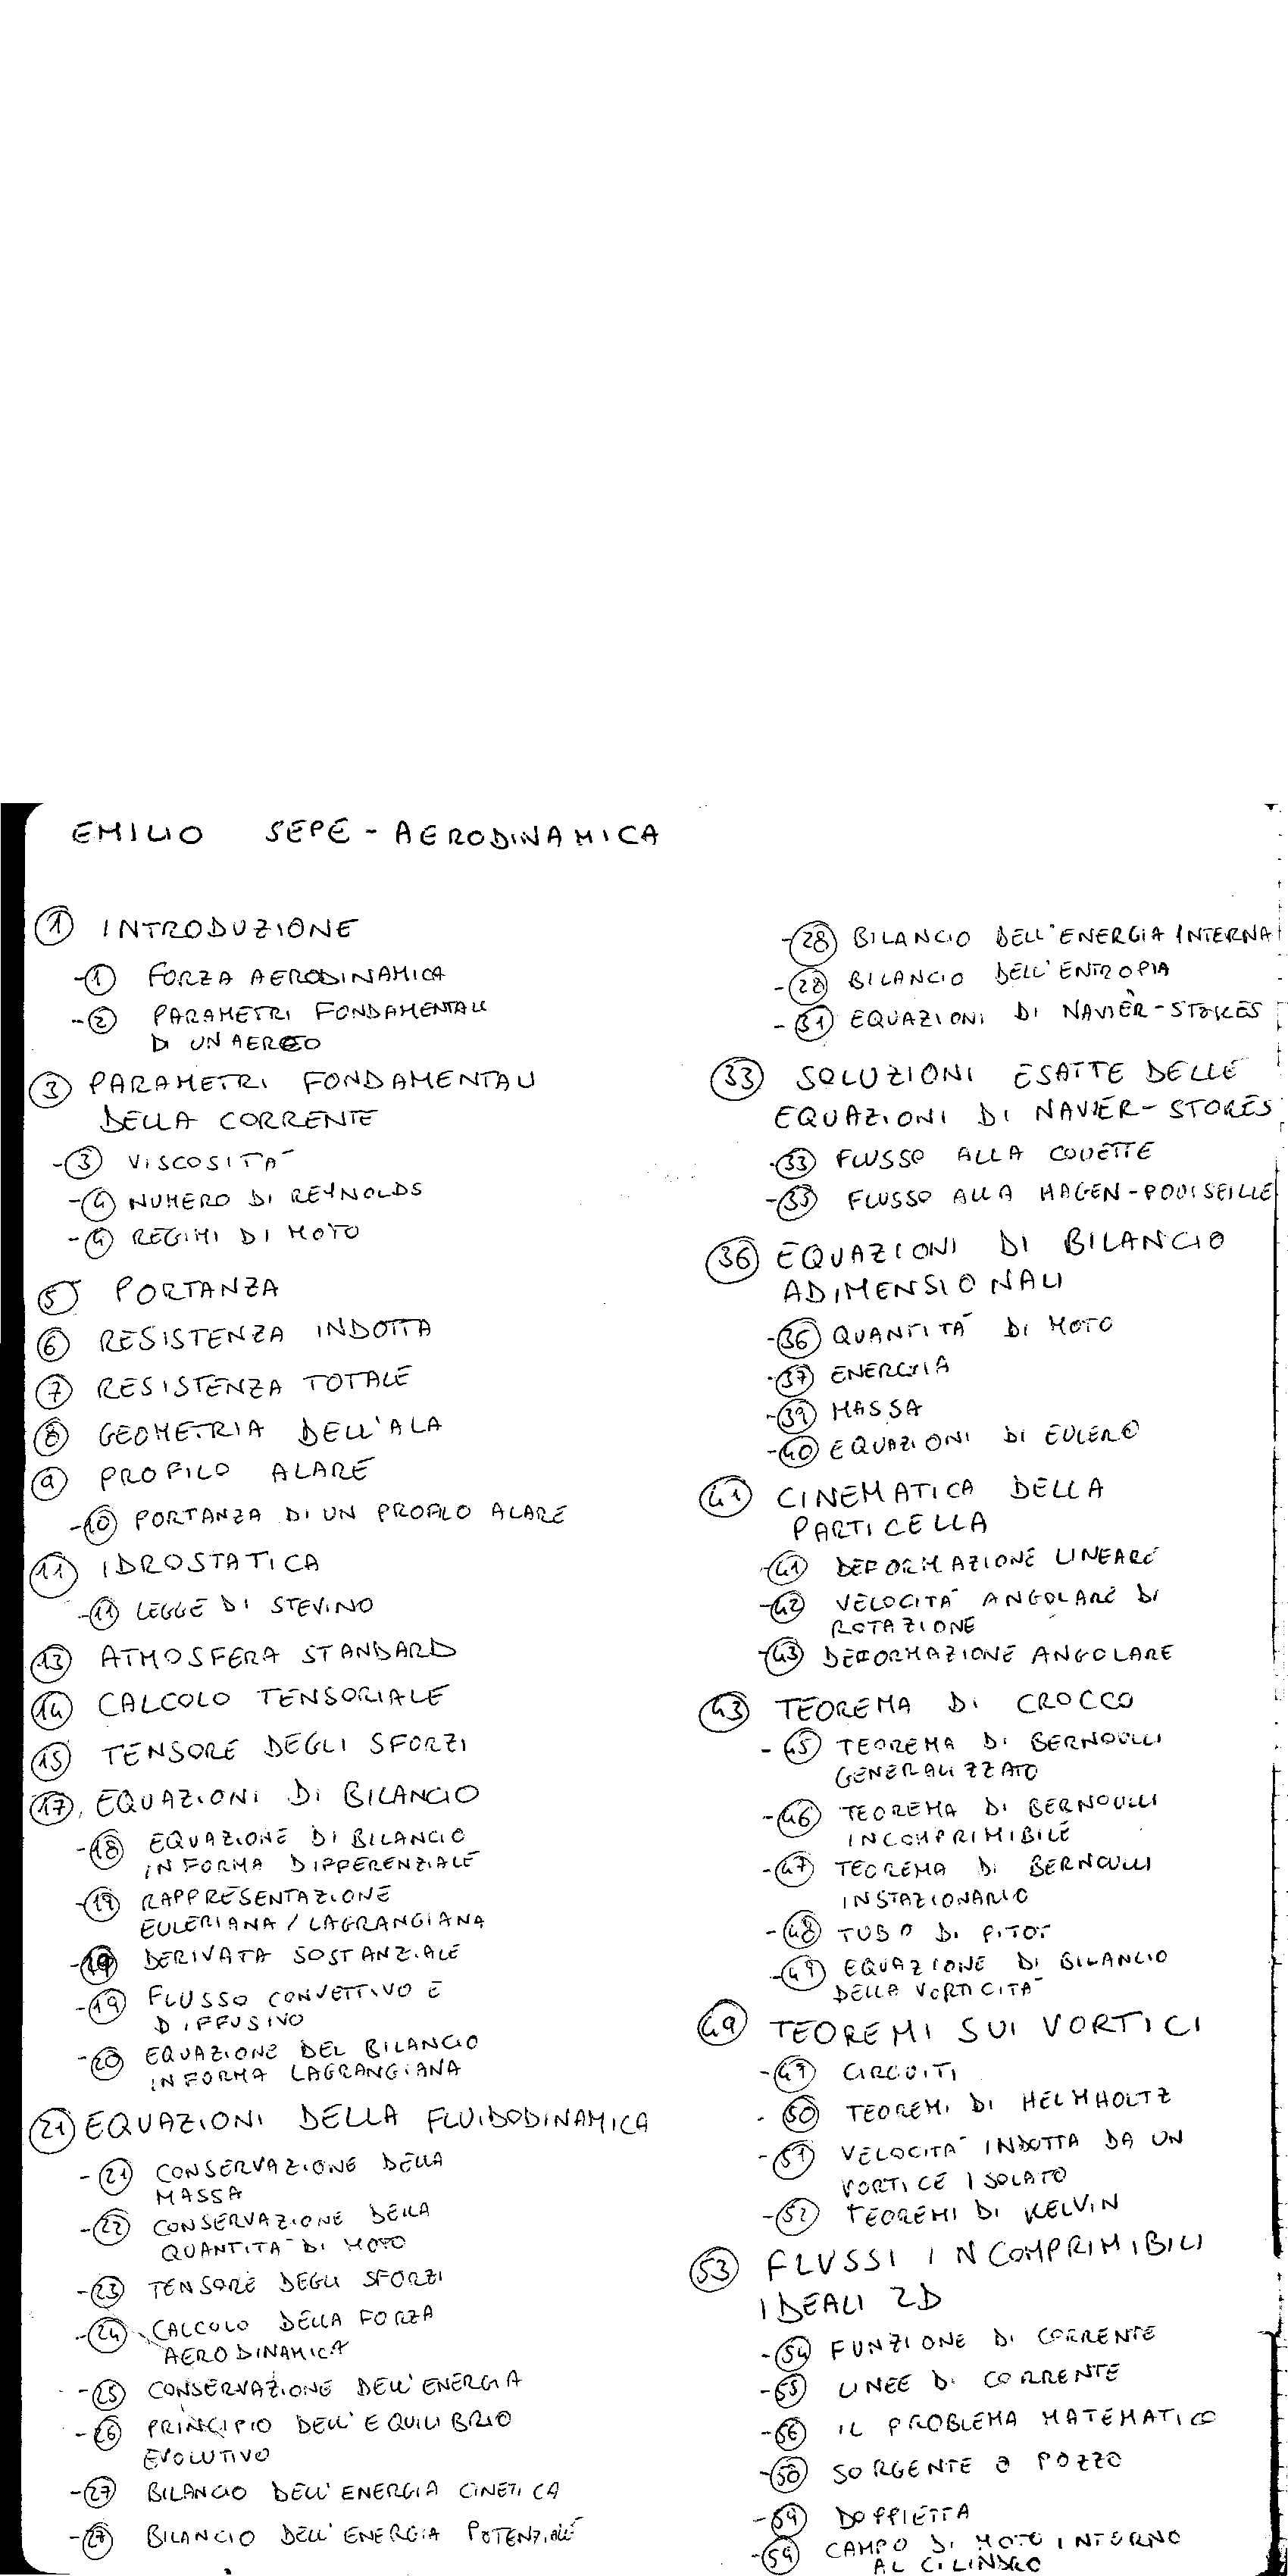 EMILIO SEPE - AERODINAMICA
① INTRODUZIONE
-① FORZA AERODINAMICA
-② PARAMETRI FONDAMENTALI
DI UN AEREO
③ PARAMETRI FONDAMENTALI
DELLA CORRENTE
-③ VISCOSITA'
-④ NUMERO DI REYNOLDS
-④ REGIMI DI MOTO
⑤ PORTANZA
⑥ RESISTENZA INDOTTA
⑦ RESISTENZA TOTALE
⑧ GEOMETRIA DELL'ALA
⑨ PROFILO ALARE
-⑩ PORTANZA DI UN PROFILO ALARE
⑪ IDROSTATICA
-⑪ LEGGE DI STEVINO
⑬ ATMOSFERA STANDARD
⑭ CALCOLO TENSORIALE
⑮ TENSORE DEGLI SFORZI
⑰ EQUAZIONI DI BILANCIO
-⑱ EQUAZIONE DI BILANCIO
IN FORMA DIFFERENZIALE
-⑲ RAPPRESENTAZIONE
EULERIANA / LAGRANGIANA
-⑲ DERIVATA SOSTANZIALE
-⑲ FLUSSO CONVETTIVO E
DIFFUSIVO
-⑳ EQUAZIONE DEL BILANCIO
IN FORMA LAGRANGIANA
㉑ EQUAZIONI DELLA FLUIDODINAMICA
-㉑ CONSERVAZIONE DELLA
MASSA
-㉒ CONSERVAZIONE DELLA
QUANTITA' DI MOTO
-㉓ TENSORE DEGLI SFORZI
-㉔ CALCOLO DELLA FORZA
AERODINAMICA
-㉕ CONSERVAZIONE DELL'ENERGIA
-㉖ PRINCIPIO DELL'EQUILIBRIO
EVOLUTIVO
-㉗ BILANCIO DELL'ENERGIA CINETICA
-㉗ BILANCIO DELL'ENERGIA POTENZIALE
-㉘ BILANCIO DELL'ENERGIA INTERNA
-㉘ BILANCIO DELL'ENTROPIA
-㉛ EQUAZIONI DI NAVIER-STOKES
㉝ SOLUZIONI ESATTE DELLE
EQUAZIONI DI NAVIER-STOKES
-㉝ FLUSSO ALLA COUETTE
-㉟ FLUSSO ALLA HAGEN-POUISEILLE
㊱ EQUAZIONI DI BILANCIO
ADIMENSIONALI
-㊱ QUANTITA' DI MOTO
-㊲ ENERGIA
-㊴ MASSA
-㊵ EQUAZIONI DI EULERO
㊶ CINEMATICA DELLA
PARTICELLA
-㊶ DEFORMAZIONE LINEARE
-㊷ VELOCITA' ANGOLARE DI
ROTAZIONE
-㊸ DEFORMAZIONE ANGOLARE
㊸ TEOREMA DI CROCCO
-㊺ TEOREMA DI BERNOULLI
GENERALIZZATO
-㊻ TEOREMA DI BERNOULLI
INCOMPRIMIBILE
-㊼ TEOREMA DI BERNOULLI
INSTAZIONARIO
-㊽ TUBO DI PITOT
-㊾ EQUAZIONE DI BILANCIO
DELLA VORTICITA'
㊾ TEOREMI SUI VORTICI
-㊾ CIRCUITI
-㊿ TEOREMI DI HELMHOLTZ
-(51) VELOCITA' INDOTTA DA UN
VORTICE ISOLATO
-(52) TEOREMI DI KELVIN
(53) FLUSSI INCOMPRIMIBILI
IDEALI 2D
-(54) FUNZIONE DI CORRENTE
-(55) LINEE DI CORRENTE
-(56) IL PROBLEMA MATEMATICO
-(58) SORGENTE O POZZO
-(59) DOPPIETTA
-(59) CAMPO DI MOTO INTORNO
AL CILINDRO